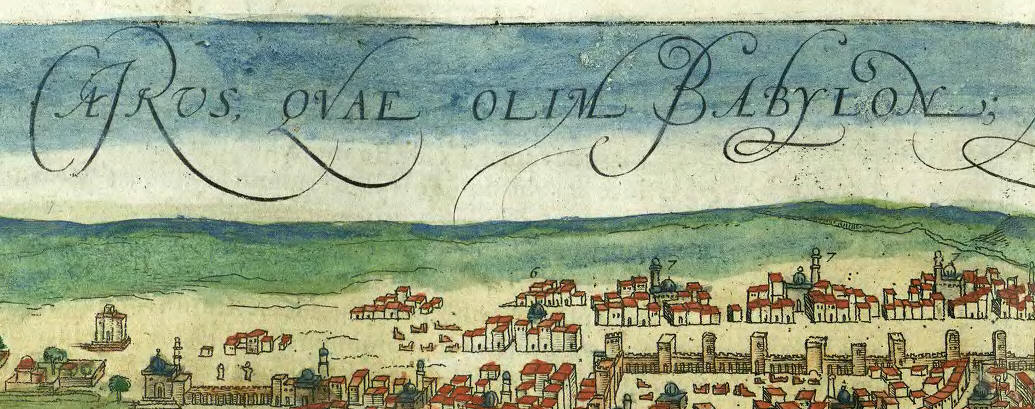 CAIRUS, QVAE OLIM BABYLON;
6 7 7 7